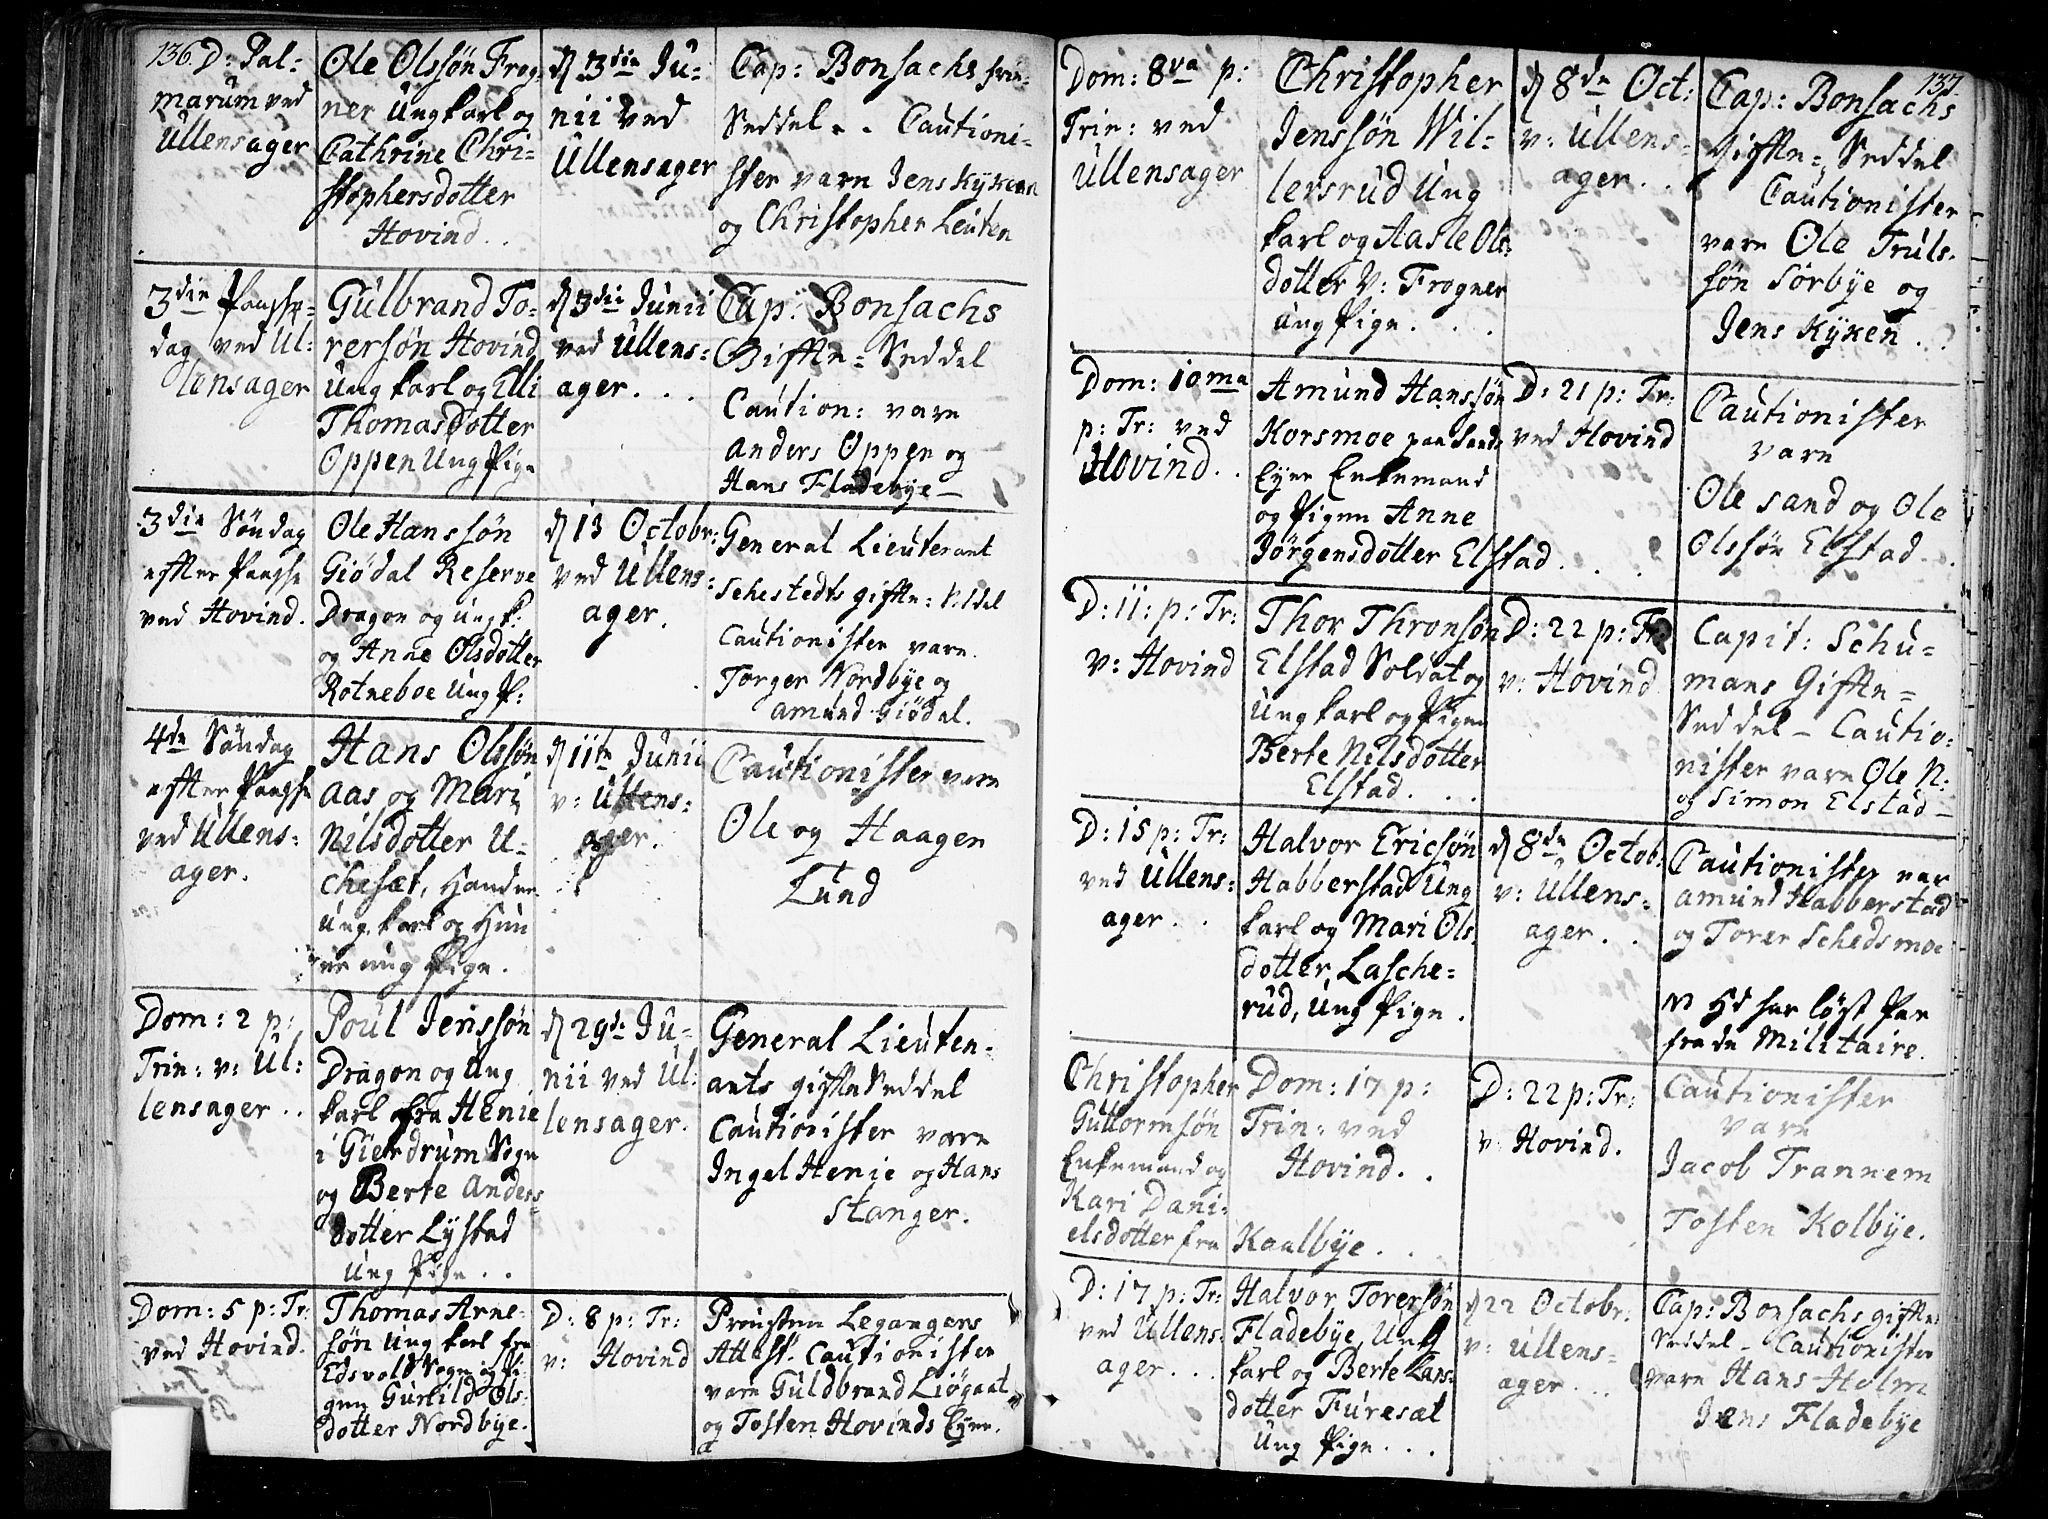 136. D: Pal-
marum ved
Ullensager
Ole Olssøn Frog-
ner Ungkarl og
Cathrine Chri-
stophersdotter
Hovind..
d 3die Ju-
nii ved
Ullensager
Cap: Bonsachs
Seddel.. Cautioni-
ster vare Jens Kyken
og Christopher Leuten
3die Paaske-
dag ved Ul-
lensager
Gulbrand To-
rersøn Hovind
Ung karl og Elli
Thomasdotter
Oppen Ung Pige
d 3dii Junii
ved Ullens-
ager...
Cap: Bonsachs
Gifte-Seddel
Caution: vare
Anders Oppen og
Hans Fladebye-
3die Søndag
efter Paaske
ved Hovind.
Ole Hanssøn
Giødal Reserve
Dragon og Ungk:
og Anne Olsdotter
Rotneboe Ung P:
d 13 Octobr:
ved Ullens-
ager.
General Lieutenant
Sehestedts gifte:
Cautionister vare
Torger Nordbye og
Amund Giødal.
4de Søndag
efter Paaske
ved Ullens-
ager.
Hans Olssøn
Aas og Mari
Nilsdotter U-
chesæt, Hand en
Ung karl og Hun
en ung Pige.
d 11te Junii
v: Ullens-
ager.
Cautionister vare
Ole og Haagen
Lund
Dom: 2 p:
Trin: v: Ul:
lensager..
Poul Jenssøn
Dragon og Ung
karl fra Henie
i Gierdrum Sogn
og Berte Anders-
dotter Lystad
Ung Pige..
d 29de Ju-
nii ved Ul:
lensager.
General Lieuten-
ants gifte Seddel
Cautionister vare
Ingel Henie og Hans
Stanger.
Dom: 5 p: Tr:
ved Hovind.
Thomas Arne-
søn Ung karl fra
Edsvold Sogn og Pi-
gen Gunild Ols-
dotter Nordbye.
D: 8 p: Tr:
v: Hovind
Prousten Legangers
Attest. Cautionister
vare Guldbrand Liøgaat
og Tosten Hovinds Eyer.
137.
Dom: 8va p:
Trin: ved
Ullensager
Christopher
Jenssøn Wil-
lersrud Ung
karl og Aasle Ols-
dotter v: Frogner
ung Pige...
d 8de Oct:
v: Ullens-
ager..
Cap: Bonsachs
Gifte-Seddel
Cautionister
vare Ole Truls-
søn Sørbye og
Jens Kyken..
Dom: 10ma
p: Tr: ved
Hovind..
Amund Hanssøn
Korsmoe paa Sands
Eyer Enkemand
og Pigen Anne
Jørgensdotter Elstad...
D: 21 p: Tr:
ved Hovind
Cautionister
vare
Ole Sand og Ole
Olssøn Elstad.
D: 11: p: Tr:
v: Hovind
Thor Thronsøn
Elstad Soldat og
Ung karl og Pigen
Berte Nilsdotter
Elstad...
D: 22 p: Tr:
v: Hovind
Capit: Schu-
mans Gifte-
Seddel - Cautio-
nister vare Ole N:
og Simon Elstad-
D: 15 p: Tr:
ved Ullens-
ager..
Halvor Ericsøn
Habberstad Ung
karl og Mari Ols-
dotter Lasche-
rud, Ung Pige.
d 8de Octob:
v: Ullens-
ager..
Cautionister var
Amund Habberstad
og Torer Schedsmoe
har løst Pas
fra de Militaire.
Christopher
Guttormsøn
Enkemand og
Kari Dani-
elsdotter fra Kaalbye..
Dom: 17 p:
Trin: ved
Hovind..
D: 22 p: Tr:
v: Hovind.
Cautionister
vare
Jacob Trannem
Tosten Kolbye.
D: 17 p: Tr:
ved Ullens-
ager...
Halvor Torersøn
Fladebye, Ung
karl og Berte Lars-
dotter Furesæt
Ung Pige...
d 22 Octobr:
v: Ullens-
ager...
Cap: Bonsachs gifte-
Seddel - Cautionister
vare Hans Holm
Jens Fladebye